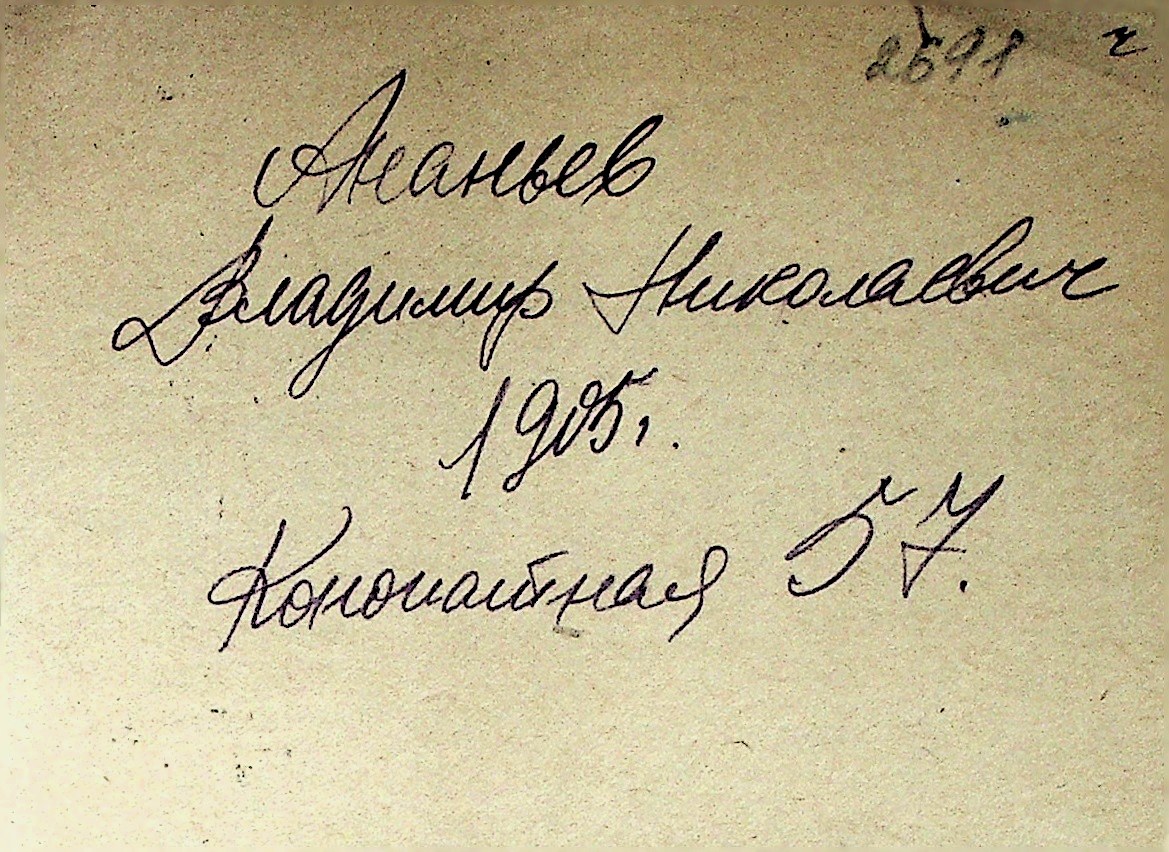 2591
Ананьев
Владимир Николаевич
1905г.
Конопатная 57.